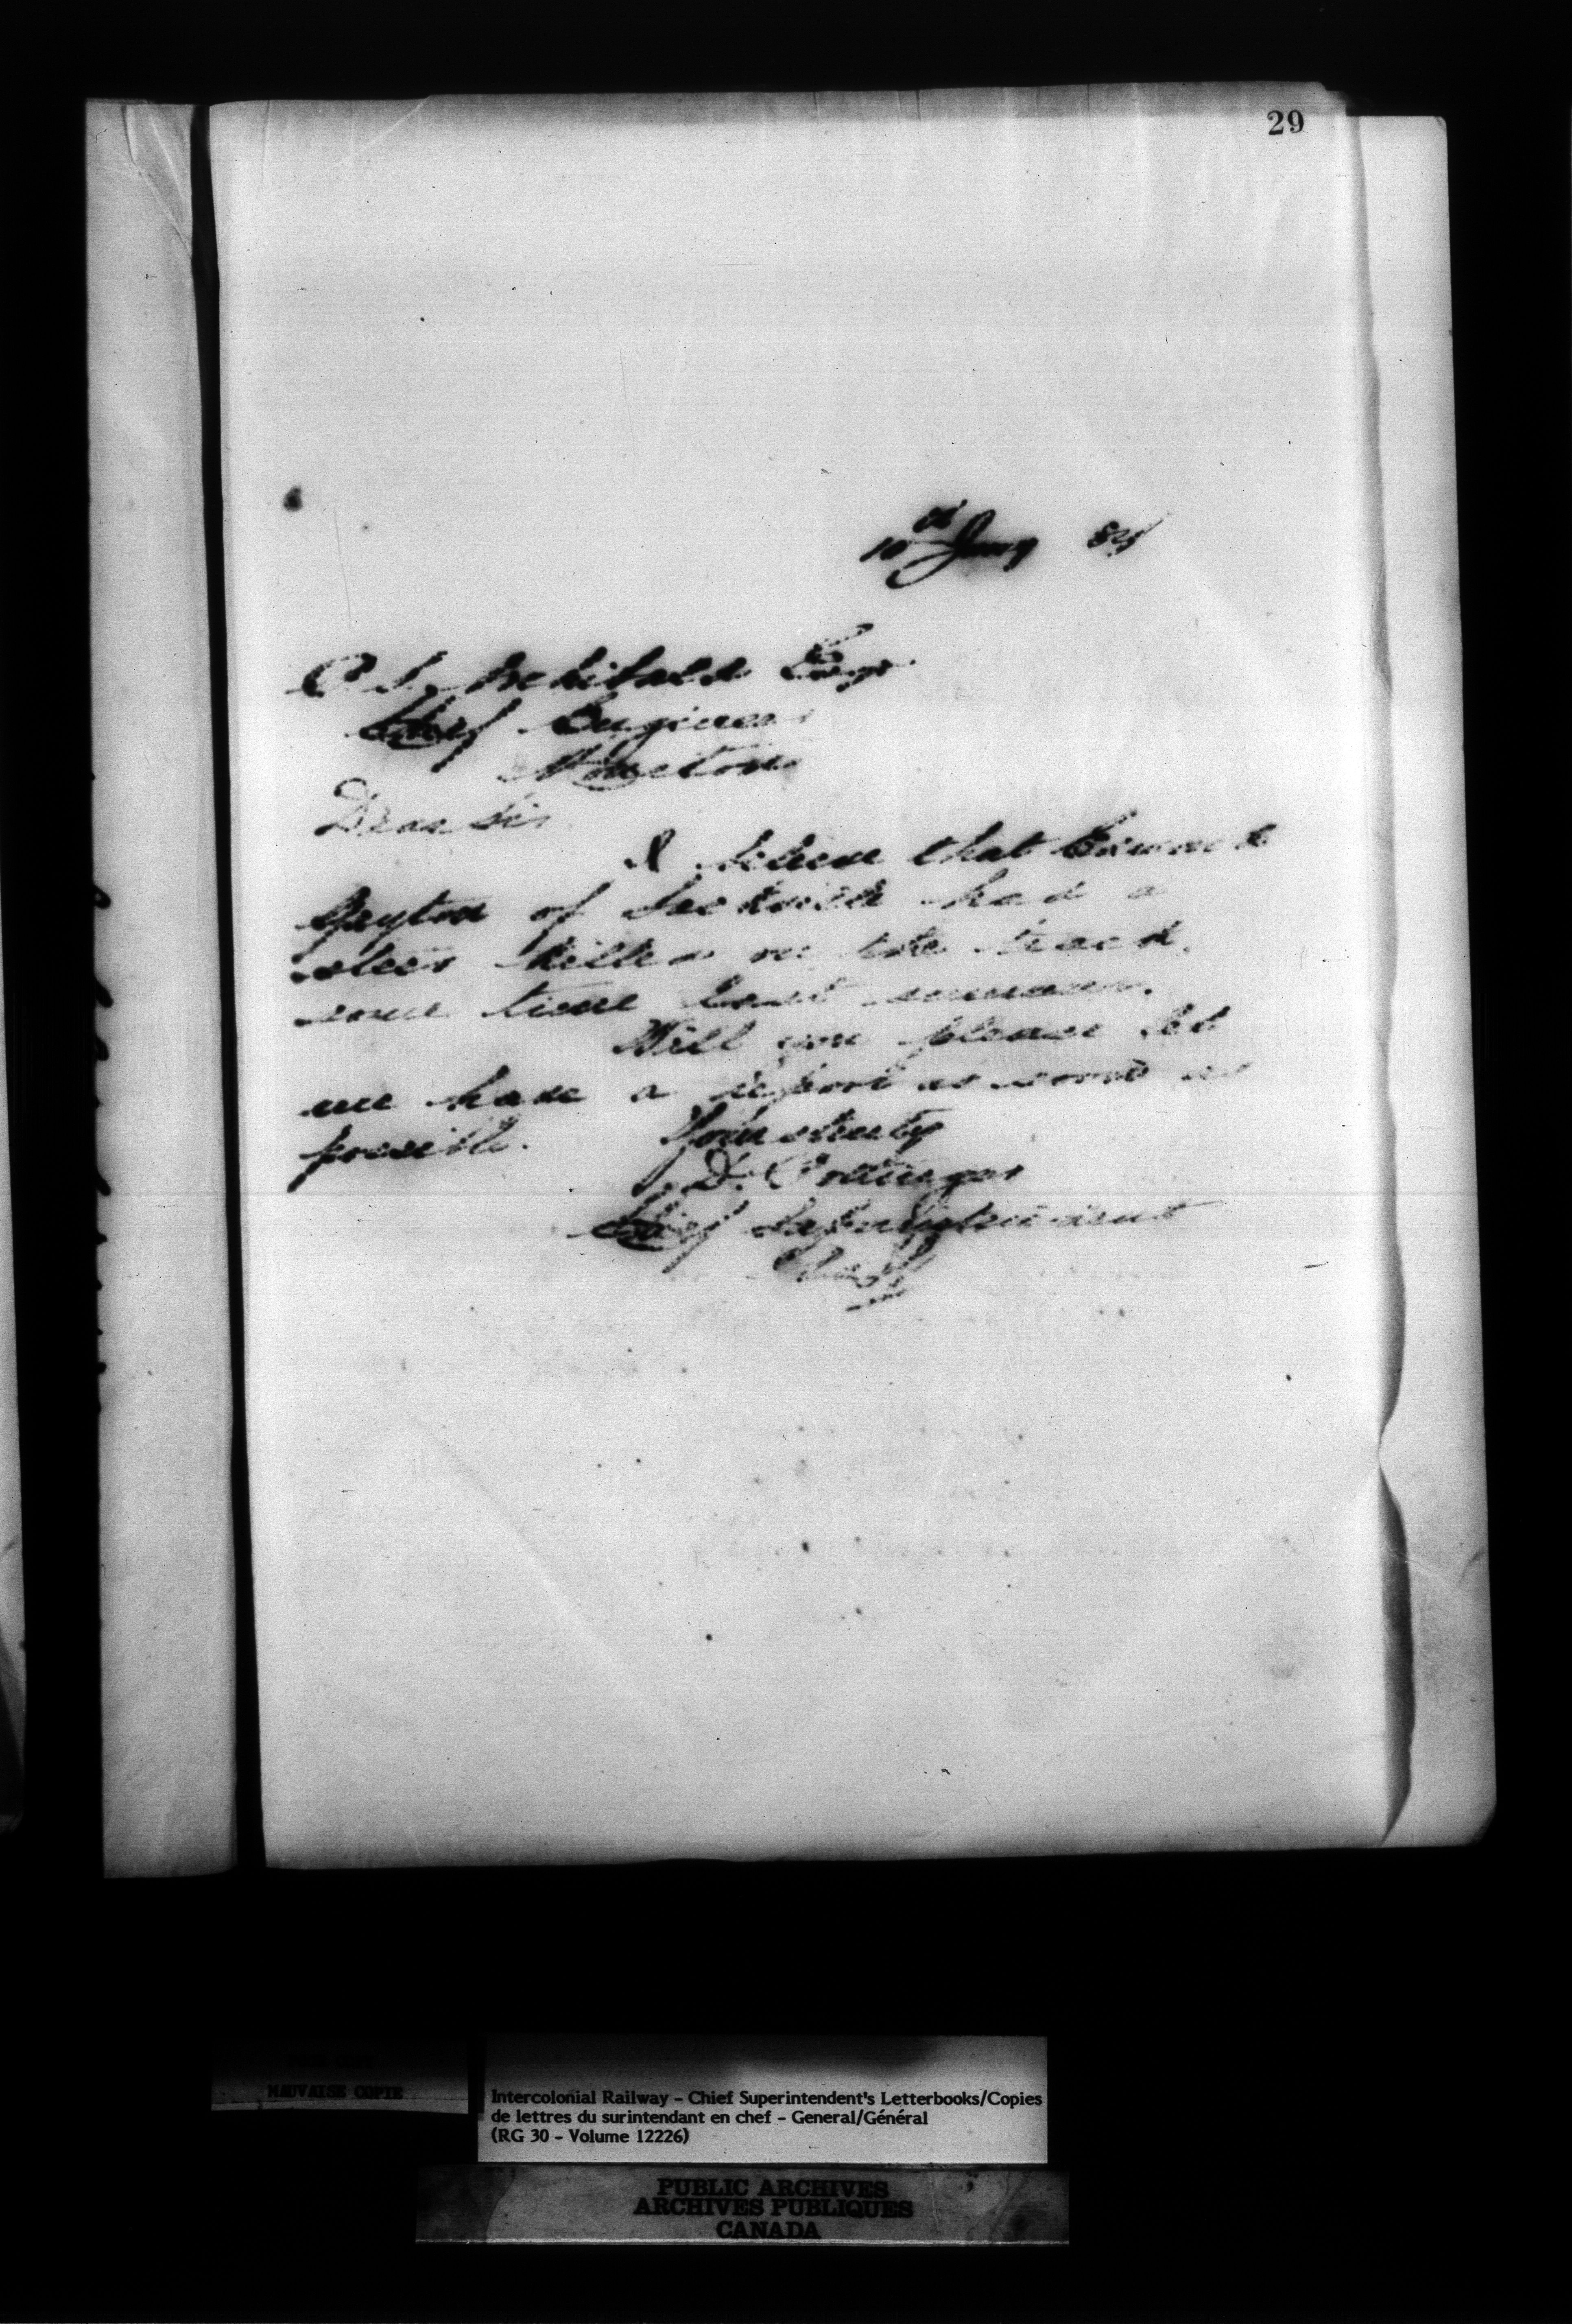 29
10th Jany 84
P. S. Archibald Esqr.
Chief Engineer
Moncton
Dear Sir
I believe that
of Sackville had a
steer killed on the track
some time last summer.
Will you please let
me have a report as soon as
possible.
Yours truly
D. Pottinger
Chief Superintendent
MAUVAISE COPIE
Intercolonial Railway - Chief Superintendent's Letterbooks/Copies
de lettres du surintendant en chef - General/Général
(RG 30 - Volume 12226)
PUBLIC ARCHIVES
ARCHIVES PUBLIQUES
CANADA